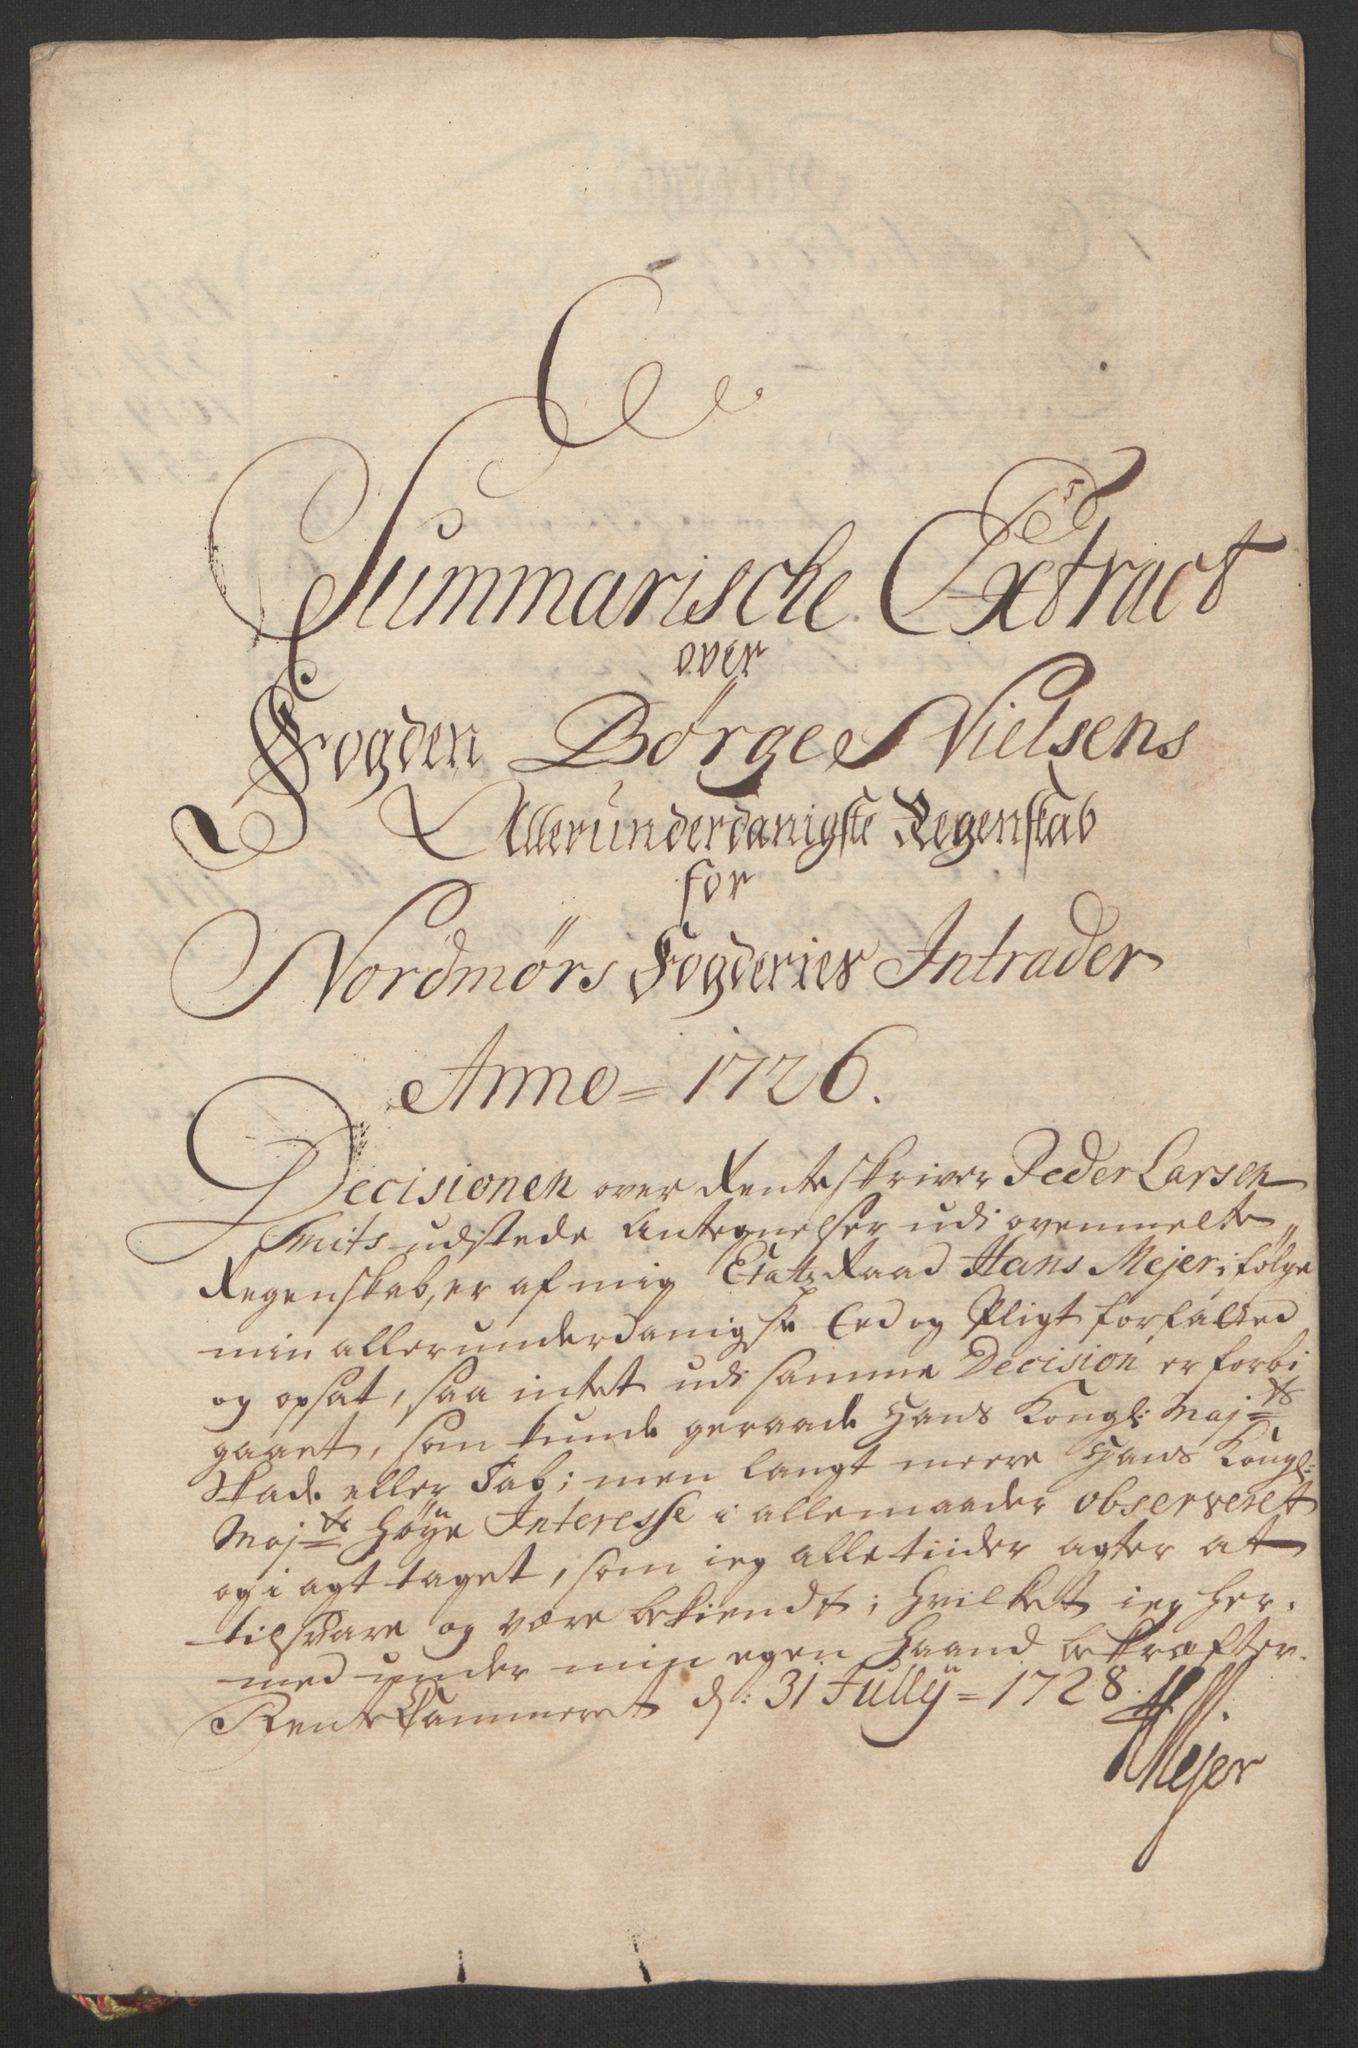 Summarische Extract
over
Fogden Börge Nielsens
Alleründerdanigste Regenskab
for
Nordmörs Fogderies Intrader
Anno = 1726.
Decisionen over Renteskriver Peder Larsen
Smits udstede Antegnelser udi ovenmelte
Regenskab, er af mig Etatz Raad Hans Mejer i følge
min allerunderdanigste Eed og Pligt forfatted
og opsat, saa intet udi samme Decision er forbi
gaaet, som kunde geraade Hans Kongl: Maj:ts
Skade eller Tab; men langt meere Hans Kongl:
Maj:ts Høye Interesse i allemaader observeret
og i agt taget, som ieg alletiider agter at
tilsvare og være bekiendt; hvilket ieg her-
med under min egen Haand bekræfter.
RenteKammeret d: 31 Jullÿ = 1728.
HMejer